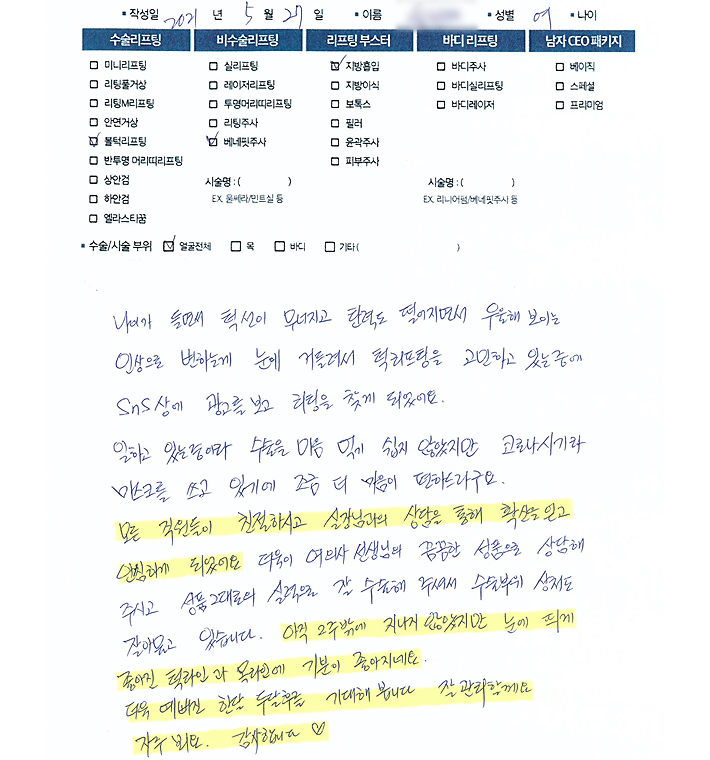 • 작성일 2021 년 5 월 27 일 • 이름 • 성별 여 • 나이
수술리프팅 비수술리프팅 리프팅 부스터 바디 리프팅 남자 CEO 패키지
미니리프팅 실리프팅 지방흡입 바디주사 베이직
리팅풀거상 레이저리프팅 지방이식 바디실리프팅 스페셜
리팅M리프팅 투명머리띠리프팅 보톡스 바디레이저 프리미엄
안면거상 리팅주사 필러
볼턱리프팅 베네핏주사 윤곽주사
반투명 머리띠리프팅 피부주사
상안검 시술명 : ( ) 시술명 : ( )
하안검 EX. 울쎄라/민트실 등 EX. 리니어펌/베네핏주사 등
엘라스티꿈
• 수술/시술 부위 얼굴전체 목 바디 기타 ( )
나이가 들면서 턱선이 무너지고 탄력도 떨어지면서 우울해 보이는
인상으로 변하는게 눈에 거슬려서 턱리프팅을 고민하고 있는중에
SNS상에 광고를 보고 리팅을 찾게 되었어요.
일하고 있는중이라 수술을 마음 먹기 쉽지 않았지만 코로나시기라
마스크를 쓰고 있기에 조금 더 마음이 편하더라구요.
모든 직원들이 친절하시고 실장님과의 상담을 통해 확신을 얻고
안심하게 되었어요 더욱이 여의사 선생님의 꼼꼼한 성품으로 상담해
주시고 성품그대로의 실력으로 잘 수술해 주셔서 수술부위 상처도
잘아물고 있습니다. 아직 2주밖에 지나지 않았지만 눈에 띄게
좋아진 턱라인과 목라인에 기분이 좋아지네요.
더욱 예뻐진 한달 두달후를 기대해 봅니다 잘 관리할께요
자주 뵈요. 감사합니다 ♡